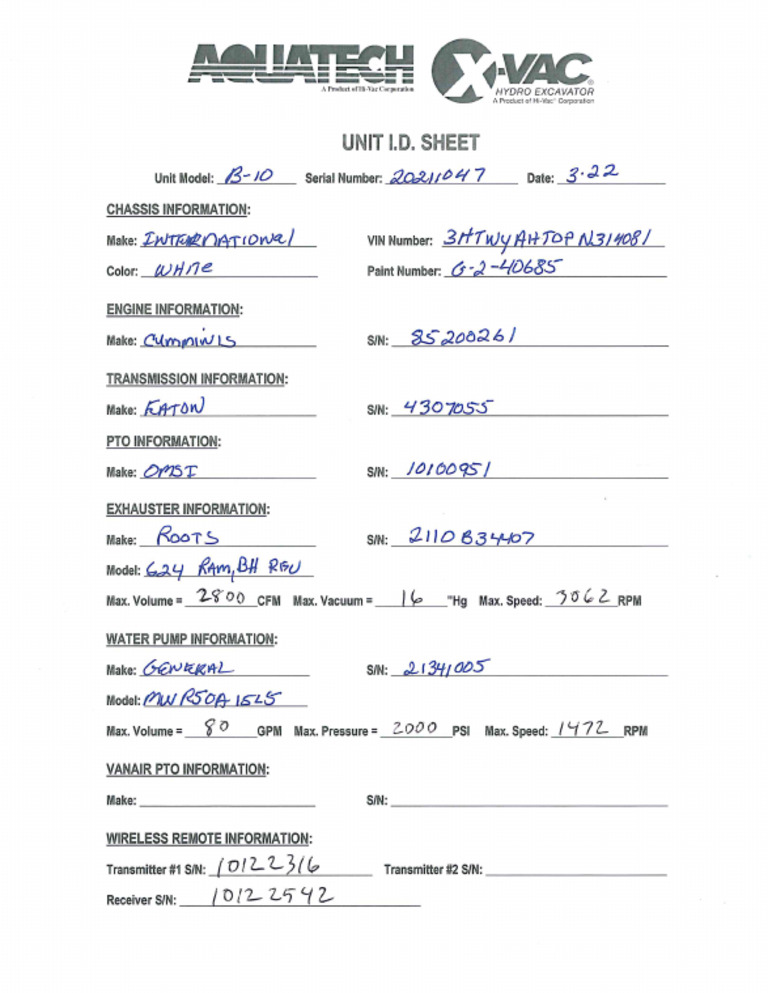 AQUATECH
A Product of Hi-Vac Corporation
X-VAC®
HYDRO EXCAVATOR
A Product of Hi-Vac® Corporation
UNIT I.D. SHEET
Unit Model: B-10 Serial Number: 20211047 Date: 3-22
CHASSIS INFORMATION:
Make: INTERNATIONAl VIN Number: 3HTWYAHT0PN314081
Color: WHITE Paint Number: G-2-40685
ENGINE INFORMATION:
Make: CUMMINS S/N: 85200261
TRANSMISSION INFORMATION:
Make: EATON S/N: 4307055
PTO INFORMATION:
Make: OMSI S/N: 10100951
EXHAUSTER INFORMATION:
Make: ROOTS S/N: 2110B34407
Model: 624 RAM, BH
Max. Volume = 2800 CFM Max. Vacuum = 16 "Hg Max. Speed: 3062 RPM
WATER PUMP INFORMATION:
Make: GENERAL S/N: 21341005
Model: MWR50A15L5
Max. Volume = 80 GPM Max. Pressure = 2000 PSI Max. Speed: 1472 RPM
VANAIR PTO INFORMATION:
Make: S/N:
WIRELESS REMOTE INFORMATION:
Transmitter #1 S/N: 10122316 Transmitter #2 S/N:
Receiver S/N: 10122542